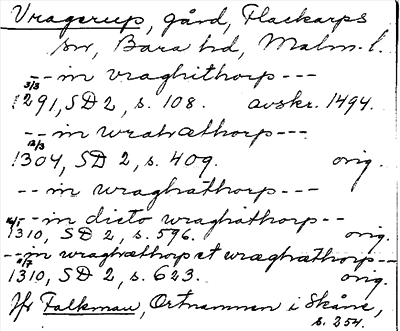 Vragerup, gård, Flackarps
sn, Bara hd, Malm. l.
-- in vraghithorp ---
3/3 1291, SD 2, s. 108. avskr. 1494.
-- in wrathæthorp ---
12/3 1304, SD 2, s. 409. orig.
-- in wraghathorp ---
-- in dicto wraghathorp --
1310, SD 2, s. 596. orig.
-- in wraghæthorp et wræghæthorp --
1310, SD 2, s. 623. orig.
Jfr Falkman, Ortnamnen i Skåne,
s. 254.